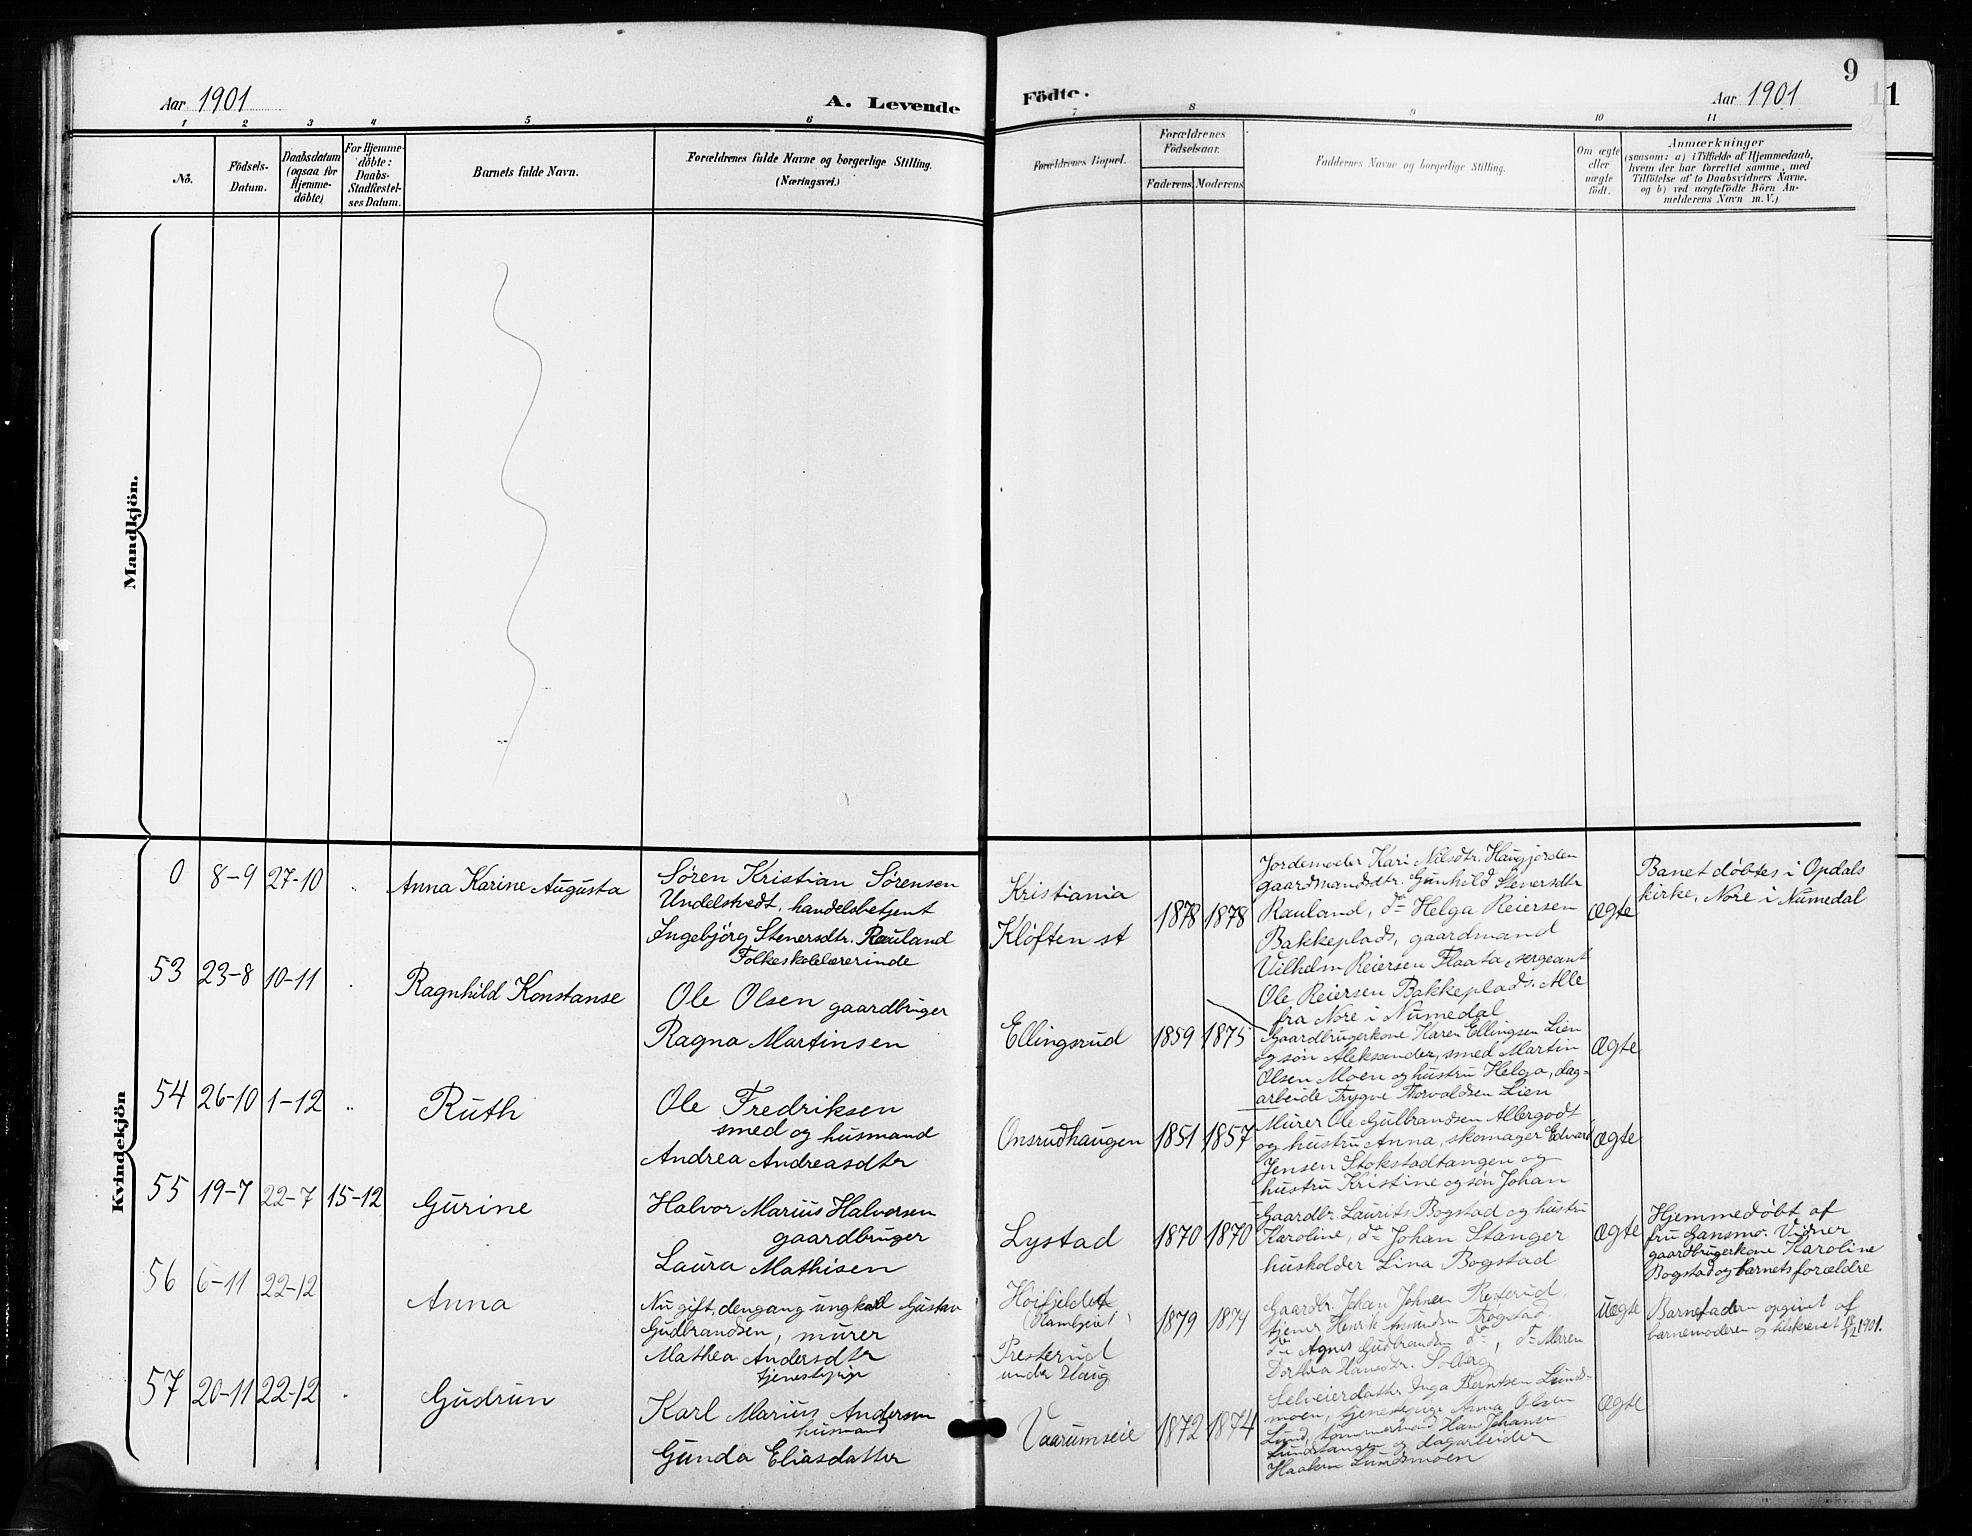 Aar 1901
A. Levende
Födte.
Aar 1901
9
11
1 2 3 4 5 6 7 8 9 10 11
No.
Födsels-
Datum.
Daabsdatum
(ogsaa for
Hjemme-
döbte)
For Hjemme-
döbte:
Daabs-
Stadfæstel-
ses Datum.
Barnets fulde Navn.
Forældrenes fulde Navne og borgerlige Stilling.
(Næringsvei.)
Forældrenes Bopæl.
Forældrenes
Födselsaar.
Faderens. Moderens.
Faddernes Navne og borgerlige Stilling.
Om ægte
eller
uægte
födt.
Anmærkninger
(saasom: a) i Tilfælde af Hjemmedaab,
hvem der har forrettet samme, med
Tilföielse af to Daabsvidners Navne.
og b) ved uægtefödte Börn An-
melderens Navn m. V.)
Mandkjön.
Kvindekjön
0 8-9 27-10 Anna Karine Augusta
Søren Kristian Sørensen
Undelstvedt, handelsbetjent
Ingebjörg Stenersdtr. Rauland
Folkeskolelærerinde
Kristiania
Kløften st
1878 1878
Jordemoder Kari Nilsdtr. Haugjorden
gaardmandsdtr. Gunhild Stenersdtr
Rauland, do Helga Reiersen
Bakkeplads, gaardmand
Vilhelm Reiersen Flaata, sergeant
Ole Reiersen Bakkeplads. Alle
fra Nore i Numedal
ægte
Banet døbtes i Opdals
kirke, Nore i Numedal
53 23-8 10-11 Ragnhild Konstanse
Ole Olsen gaardbruger
Ragna Martinsen
Ellingsrud
1859 1875
Gaardbrugerkone Karen Ellingsen Lien
og søn Aleksander, smed Martin
Olsen Moen og hustru Helga, dag-
arbeide Trygve Thorvaldsen Lien
ægte
54 26-10 1-12 Ruth
Ole Fredriksen
smed og husmand
Andrea Andreasdtr
Onsrudhaugen
1851 1857
Murer Ole Gulbrandsen Allergodt
og hustru Anna, skomager Edvard
Jensen Stokstadtangen og
hustru Kristine og søn Johan
ægte
55 19-7 22-7 15-12 Gurine
Halvor Marius Halvorsen
gaardbruger
Laura Mathisen
Lystad
1870 1870
Gaardbr. Laurits Bogstad og hustru
Karoline, do Johan Stanger
husholder Lina Bogstad
ægte
Hjemmedøbt af
fru Gansmo. Vidner
gaardbrugerkone Karoline
Bogstad og barnets forældre
56 6-11 22-12 Anna
Nu gift, dengang ungkarl Gustav
Gudbrandsen, murer
Mathea Andersdtr
tjenestepige
Høifjeldet
Presterud
under Haug
1879 1879
Gaardbr. Johan Johnsen Presterud,
tjener Henrik Amundsen Trøgstad
do Agnes Gudbrandsen do, do Maren
Dorthea Hansdtr. Solberg
uægte
Barnefaderen opgivet af
barnemoderen og tilskrevet 1901.
57 20-11 22-12 Gudrun
Karl Marius Andersen
husmand
Gunda Eliasdatter
Vaarumseie
1872 1874
Selveierdatter Inga Berntsen Lunds-
moen, tjenestepige Anna Olsen
Lund, tømmermand Hans Johansen
Lundstangen og dagarbeider
Haaken Lundsmoen
ægte